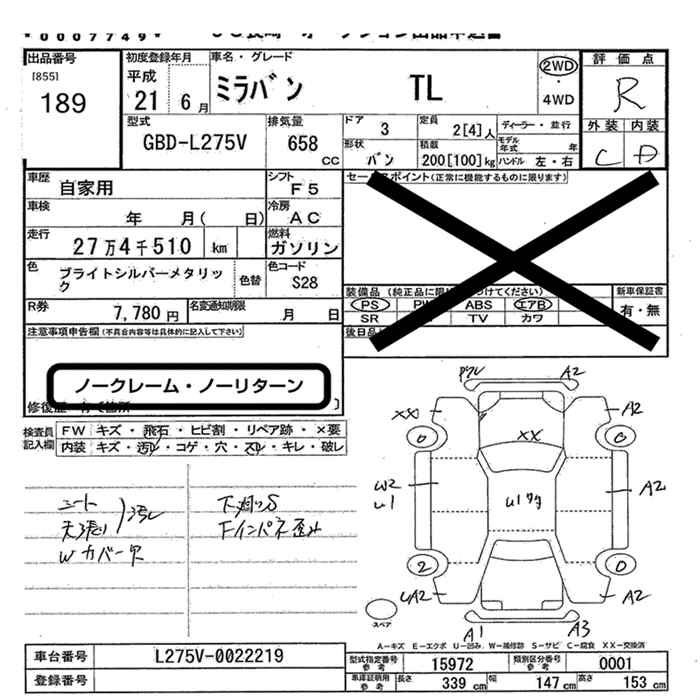 *0007749*
出品番号
[855]
189
初度登録年月
平成
21 6月
車名・グレード
ミラバン TL
2WD
・
4WD
評価点
R
外装 内装
C D
型式
GBD-L275V
排気量
658
CC
ドア
3
定員
2[4]人
ディーラー・並行
モデル年式 年
形状
バン
積載
200[100]kg
ハンドル 左・右
車歴
自家用
シフト
F5
セールスポイント(正常に機能するものに限ります)
車検
年 月( 日)
冷房
AC
走行
27万4千510 km
燃料
ガソリン
色
ブライトシルバーメタリック
色替
色コード
S28
R券
7,780円
名変通知期限
月 日
装備品
PS ABS エアB
SR TV カワ
新車保証書
有・無
後日品
注意事項申告欄(不具合内容等は具体的に記入して下さい)
ノークレーム・ノーリターン
検査員記入欄
FW キズ・飛石・ヒビ割・リペア跡・×要
内装 キズ・汚レ・コゲ・穴・スレ・キレ・破レ
シート
天張り 汚レ
Wカバー欠
下廻りS
Fインパネ歪み
A2
XX A2
0 0
XX
W2
U1
A2
2 0
UA2 A2
A1 A3
スペア
A-キズ E-エクボ U-凹み W-補修跡 S-サビ C-腐食 XX-交換済
車台番号 L275V-0022219
登録番号
型式指定番号 参考 15972 類別区分番号 参考 0001
車庫証明用 参考 長さ 339cm 幅 147cm 高さ 153cm